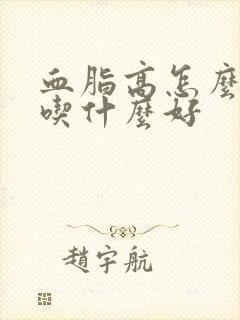 血脂高怎麽
喫什麽好
趙宇航